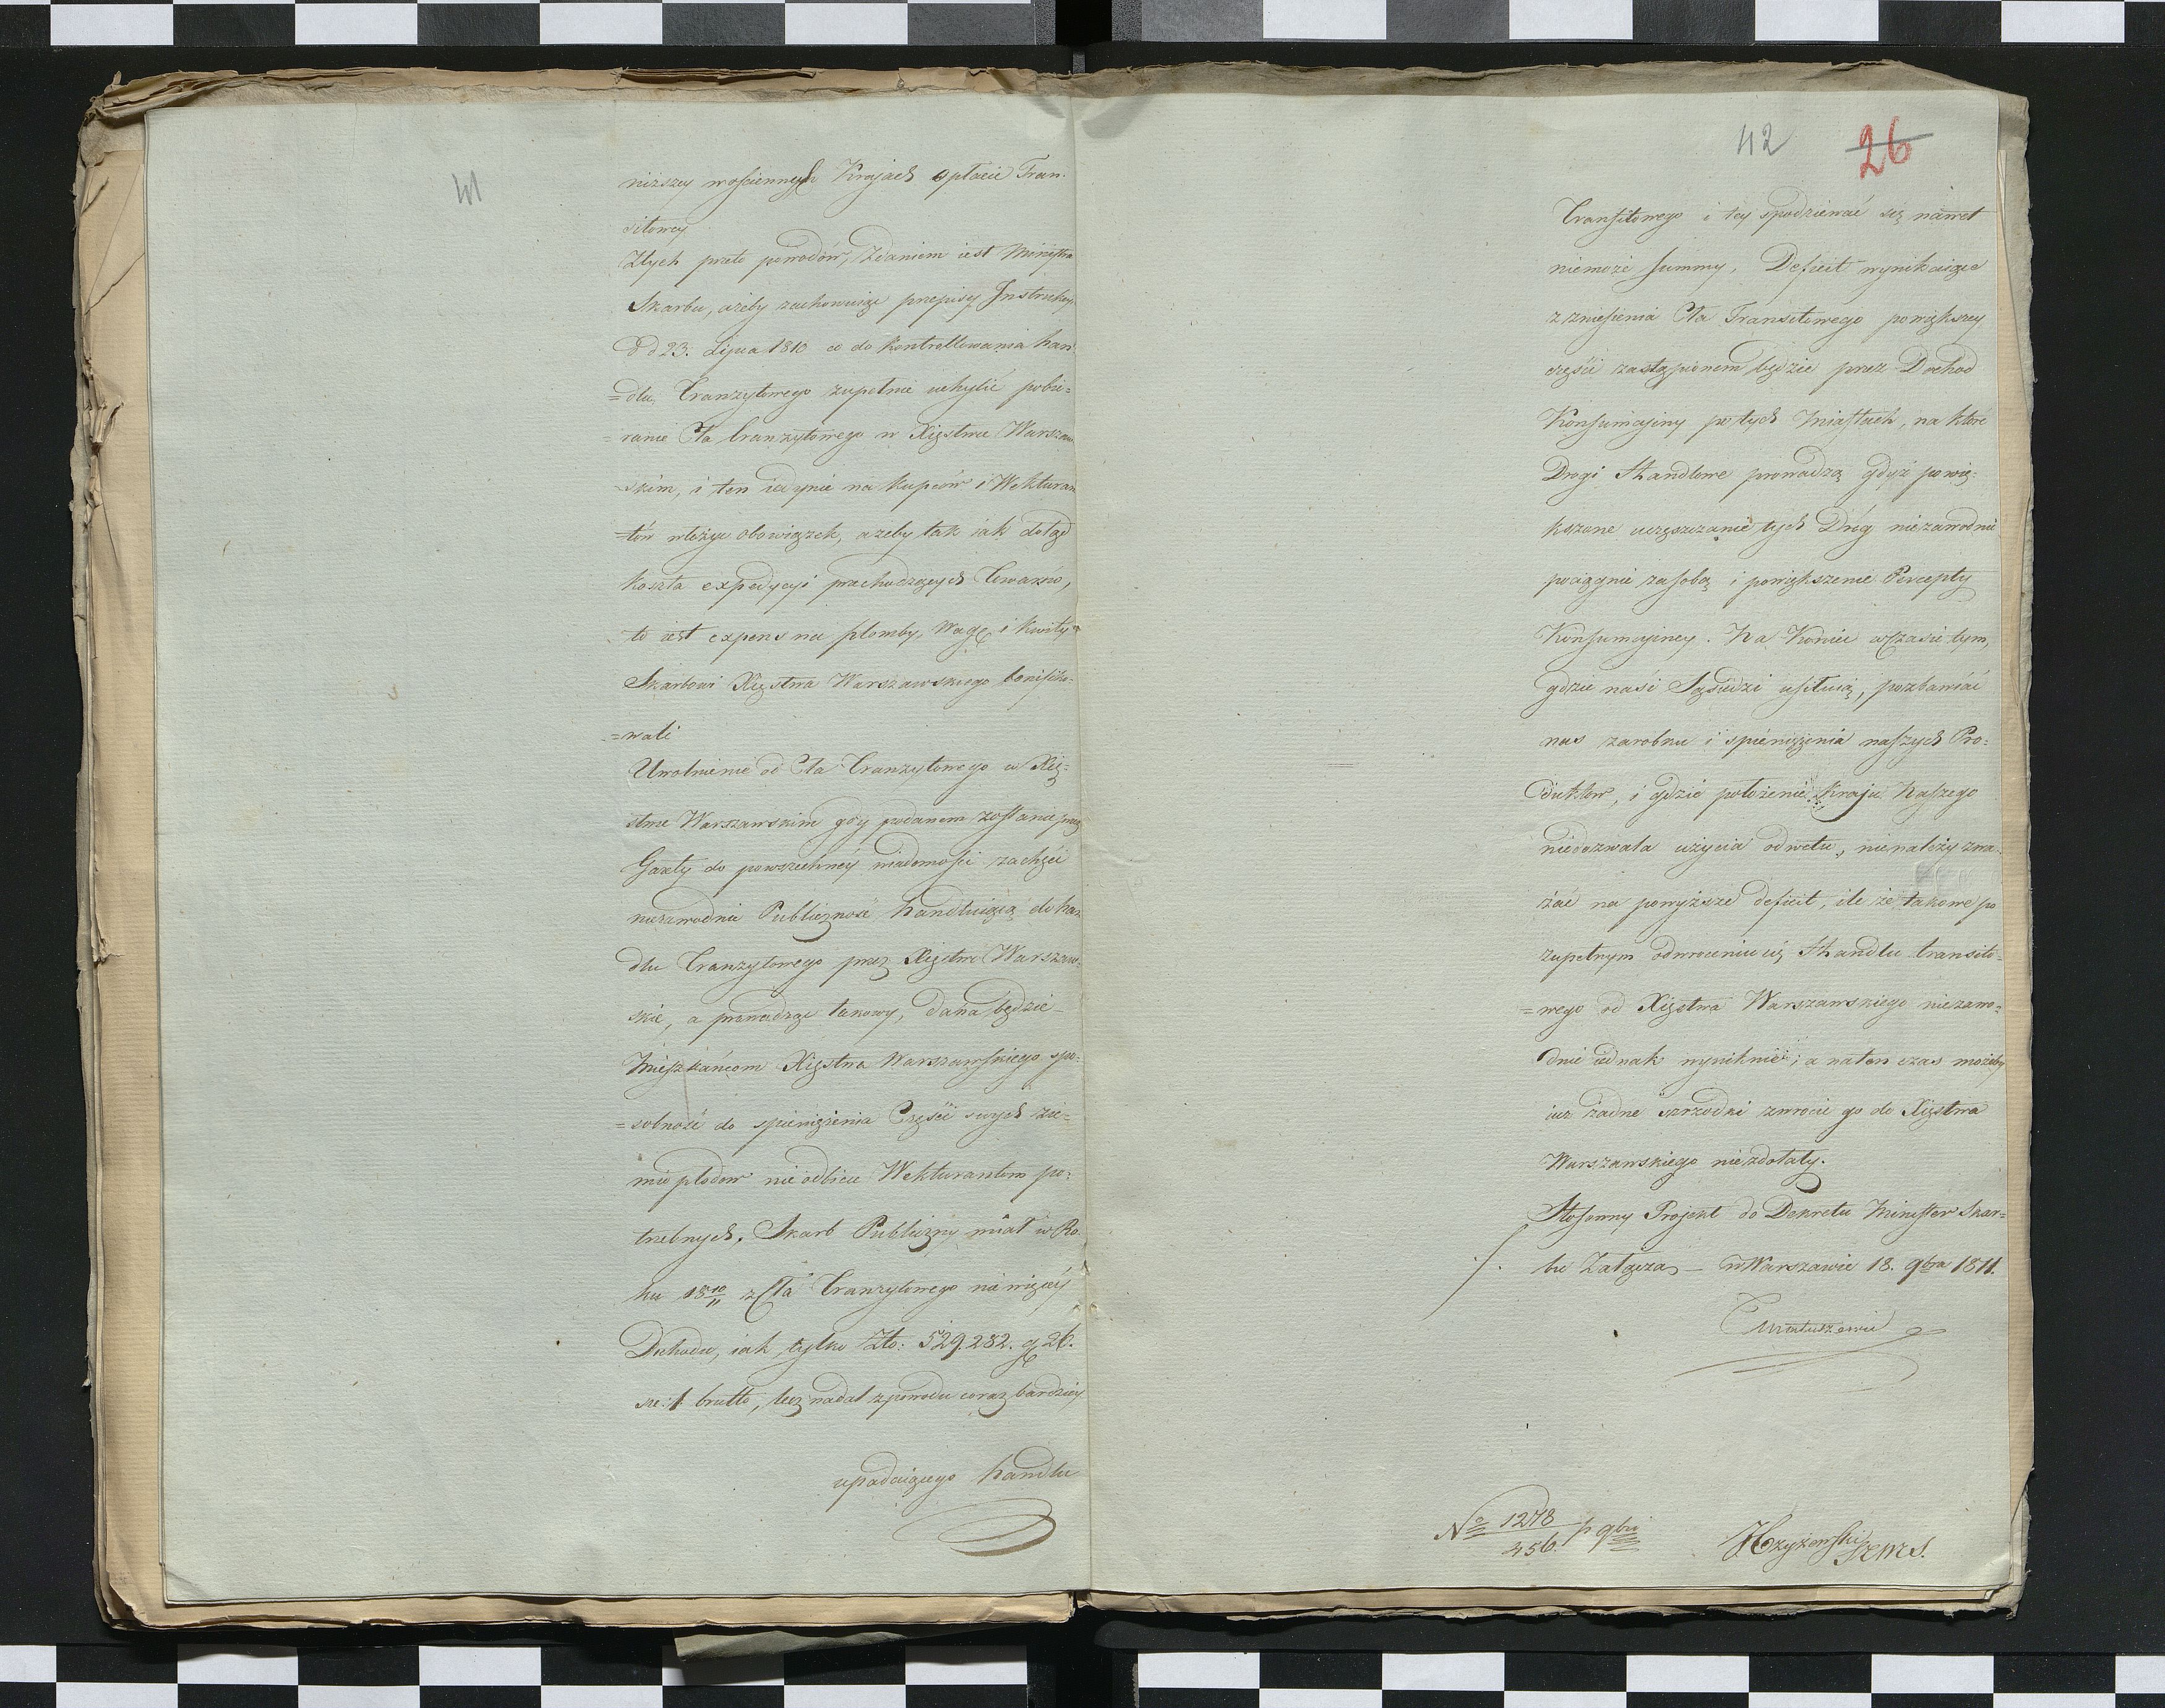 41
niższey w ościennych Krajach opłacie Tran-
sitowey
Z tych przeto powodów, Zdaniem iest Ministra
Skarbu, ażeby zachowuiąc przepisy Instrukcyi
d d 23. Lipca 1810 co do kontrollowania han-
=dlu Tranzytowego zupełnie uchylić pobie-
=ranie Cła tranzytowego w Xięstwie Warszaw-
=skim, i ten iedynie na kupców i Wekturan-
=tów włożyć obowiązek, ażeby tak iak dotąd
koszta expedycyi przechodzących Towarów,
to iest expens na plomby, wagę i kwity
Skarbowi Xięstwa Warszawskiego bonifiko-
=wali
Uwolnienie od Cła Tranzytowego w Xię-
stwie Warszawskim gdy podanem zostanie przez
Gazety do powszechney wiadomości zachęci
niezawodnie Publiczność handluiącą do han-
dlu Tranzytowego przez Xięstwo Warszaw-
skie, a prowadząc takowy, dana będzie
Mieszkańcom Xięstwa Warszawskiego spo-
=sobność do spieniężenia Części swych zie-
mio płodow nieodbicie Wekturantom po-
trzebnych. Skarb Publiczny miał w Ro-
ku 18 10/11 z Cła Tranzytowego nie więcey
Dochodu, iak tylko Zło: 529.282. g 26.
sze: 1. brutto, lecz nadal z powodu coraz bardziey
upadaiącego handlu
42 26
Transitowego i tey spodziewać się nawet
niemoże summy. Deficit wynikaiące
z zniesienia Cła Transitowego powiększey
części zastąpionem będzie przez Dochod
Konsumcyiny po tych Miastach, na które
Drogi Handlowe prowadzą gdyż powię-
kszone uczęszczanie tych Dróg niezawodnie
pociągnie za sobą i powiększenie Percepty
Konsumcyiney. Na Koniec w czasie tym,
gdzie nasi Sąsiedzi usiłuią, pozbawiać
nas zarobku i spieniężenia naszych Pro-
duktow, i gdzie położenie Kraju Naszego
niedozwala użycia odwetu, nienależy zwa-
żać na powyższe deficit, ile że takowe po
zupełnym odwroceniu się Handlu transito-
=wego od Xięstwa Warszawskiego niezawo-
dnie iednak wyniknie; a naten czas możeby
iuz żadne szrzodki zwrocić go do Xięstwa
Warszawskiego niezdołały.
Stosowny Projekt do Dekretu Minister Skar-
bu Załącza – w Warszawie 18. 9bra 1811.
Matuszewic
No 1278/456. p 9bri